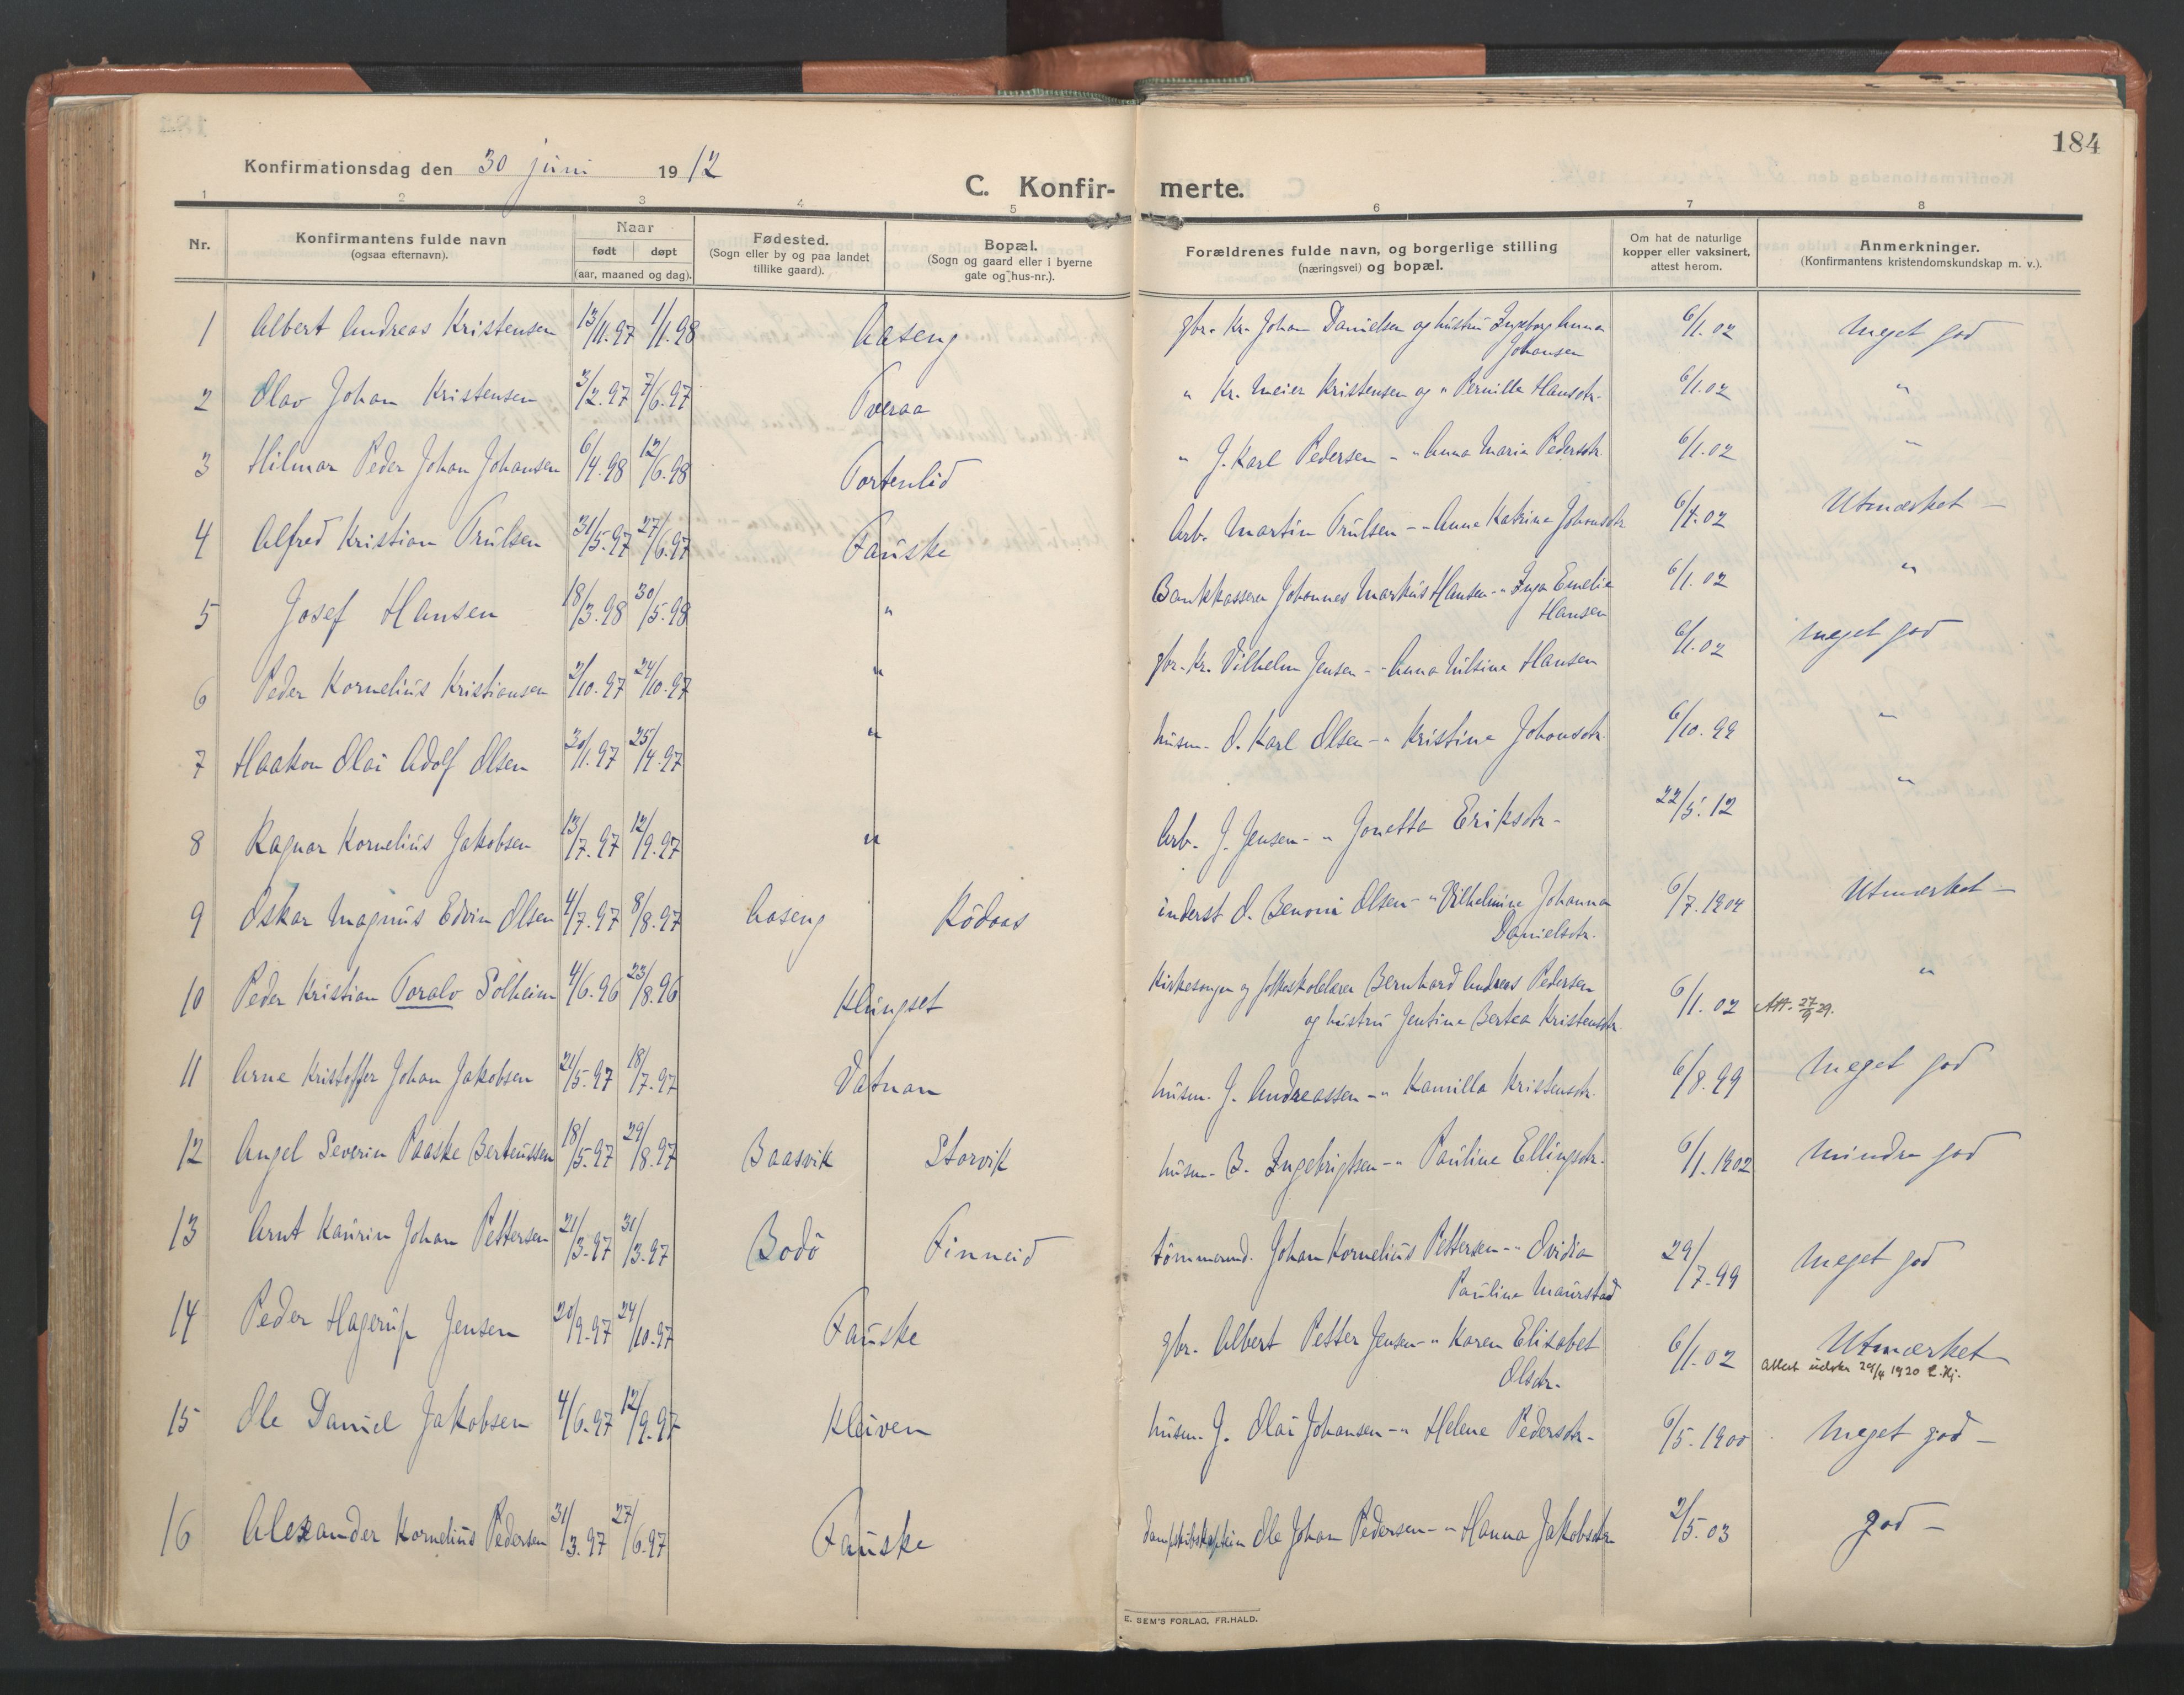 184
Konfirmationsdag den 30 juni 1912
C. Konfir- merte.
1 2 3 4 5 6 7 8
Nr.
Konfirmantens fulde navn
(ogsaa efternavn).
Naar
født døpt
(aar, maaned og dag).
Fødested.
(Sogn eller by og paa landet
tillike gaard).
Bopæl.
(Sogn og gaard eller i byerne
gate og hus-nr.).
Forældrenes fulde navn, og borgerlige stilling
(næringsvei) og bopæl.
Om hat de naturlige
kopper eller vaksinert,
attest herom.
Anmerkninger.
(Konfirmantens kristendomskundskap m. v.).
1 Albert Andreas Kristensen 13/11.97 1/1.98 Aaseng gbr. Kr. Johan Danielsen og hustru Ingeborg Anna 6/1.02 Meget god
Johansen
2 Olav Johan Kristensen 3/2.97 7/6.97 Tveraa " Kr. Meier Kristensen og " Pernille Hansdtr. 6/1.02 "
3 Hilmar Peder Johan Johansen 6/4.98 12/6.98 Tortenlid " J. Karl Pedersen - " Anna Maria Pedersdtr. 6/1.02 "
4 Alfred Kristian Trulsen 31/5.97 27/6.97 Fauske Arb. Martin Trulsen - - Anna Katrine Johansdtr 6/4.02 Utmærket -
5 Josef Hansen 18/3.98 30/5.98 " Bankkasserer Johannes Markus Hansen - " Inga Emelie 6/1.02 "
Hansen
6 Peder Kornelius Kristiansen 2/10.97 24/10.97 " gbr. Kr. Vilhelm Jensen - - Anna Nilsine Hansen 6/1.02 Meget god
7 Haakon Olai Adolf Olsen 30/1.97 25/4.97 " husm. O. Karl Olsen - " Kristine Johansdtr. 6/10.99 "
8 Ragnar Kornelius Jakobsen 13/7.97 12/9.97 " Arb. J. Jensen - " Jonetta Eriksdtr - 22/5.12 "
9 Oskar Magnus Edvin Olsen 4/7.97 8/8.97 Aaseng Rödaas inderst O. Benoni Olsen - " Vilhelmine Johanna 6/7.1904 Utmærket -
Danielsdtr.
10 Peder Kristian Toralv Solheim 4/6.96 23/8.96 Klungset Kirkesanger og folkeskolelærer Bernhard Andreas Pedersen "
og hustru Jentine Bertea Kristensdtr. 6/1.02 Att. 27/9 29.
11 Arne Kristoffer Johan Jakobsen 21/5.97 18/7.97 Vatnan husm. J. Andreassen - " Kamilla Kristensdtr. 6/8.99 Meget god
12 Angel Severin Paaske Berteussen 18/5.97 29/8.97 Baasvik Storvik husm. B. Ingebrigtsen - " Pauline Ellingsdtr. 6/1.1902 Mindre god
13 Arnt Kaurin Johan Pettersen 21/3.97 31/3.97 Bodö Finneid tömmermd. Johan Kornelius Pettersen - " Ovidia 29/7.99 Meget god
Pauline Maurstad
14 Peder Hagerup Jensen 20/9.97 24/10.97 Fauske gbr. Albert Petter Jensen - " Karen Elisabet 6/1.02 Utmærket
Olsdtr. Attest udstr 29/4 1920
15 Ole Daniel Jakobsen 4/6.97 12/9.97 Kleiven husm. J. Olai Johansen - " Helene Pedersdtr - 6/5.1900 Meget god -
16 Alexander Kornelius Pedersen 31/3.97 27/6.97 Fauske Dampskibskaptein Ole Johan Pedersen - " Hanna Jakobsdtr 2/5.03 god -
E. SEM'S FORLAG, FR.HALD.